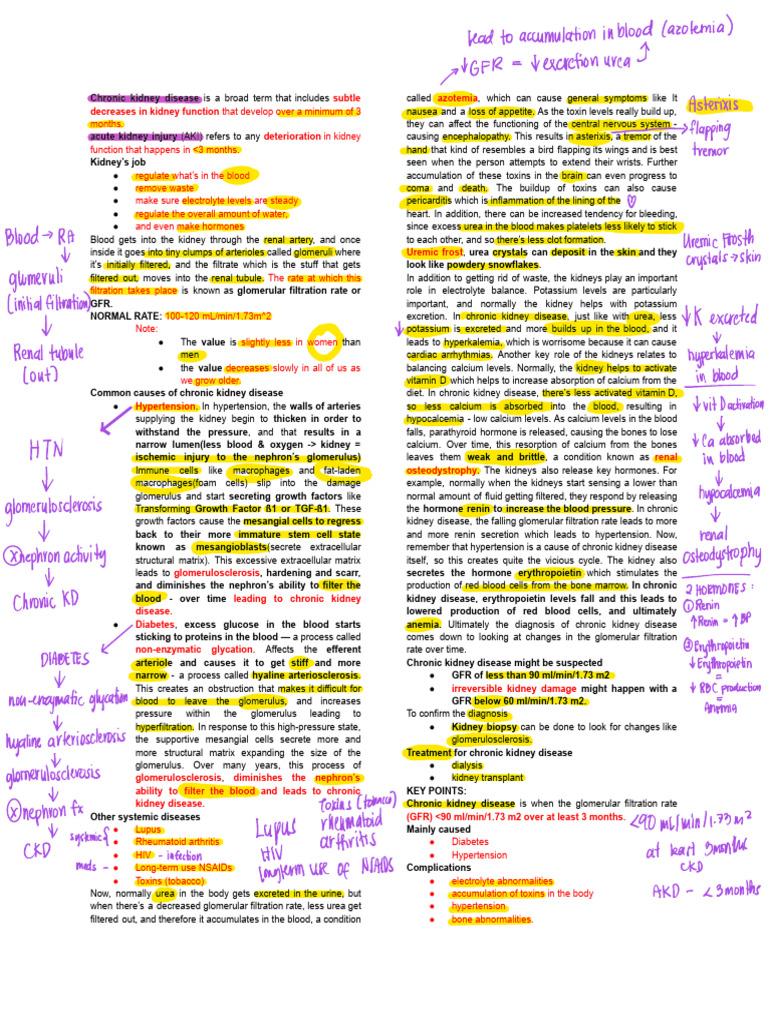 lead to accumulation in blood (azotemia)
↓GFR = ↓ excretion urea
Chronic kidney disease is a broad term that includes subtle
decreases in kidney function that develop over a minimum of 3
months.
acute kidney injury (AKI) refers to any deterioration in kidney
function that happens in <3 months.
Kidney's job
• regulate what's in the blood
• remove waste
• make sure electrolyte levels are steady
• regulate the overall amount of water,
• and even make hormones
Blood gets into the kidney through the renal artery, and once
inside it goes into tiny clumps of arterioles called glomeruli where
it's initially filtered, and the filtrate which is the stuff that gets
filtered out, moves into the renal tubule. The rate at which this
filtration takes place is known as glomerular filtration rate or
GFR.
NORMAL RATE: 100-120 mL/min/1.73m^2
Note:
• The value is slightly less in women than
men
• the value decreases slowly in all of us as
we grow older.
Common causes of chronic kidney disease
• Hypertension. In hypertension, the walls of arteries
supplying the kidney begin to thicken in order to
withstand the pressure, and that results in a
narrow lumen(less blood & oxygen -> kidney =
ischemic injury to the nephron's glomerulus)
Immune cells like macrophages and fat-laden
macrophages(foam cells) slip into the damage
glomerulus and start secreting growth factors like
Transforming Growth Factor ß1 or TGF-ß1. These
growth factors cause the mesangial cells to regress
back to their more immature stem cell state
known as mesangioblasts(secrete extracellular
structural matrix). This excessive extracellular matrix
leads to glomerulosclerosis, hardening and scarr,
and diminishes the nephron's ability to filter the
blood - over time leading to chronic kidney
disease.
• Diabetes, excess glucose in the blood starts
sticking to proteins in the blood — a process called
non-enzymatic glycation. Affects the efferent
arteriole and causes it to get stiff and more
narrow - a process called hyaline arteriosclerosis.
This creates an obstruction that makes it difficult for
blood to leave the glomerulus, and increases
pressure within the glomerulus leading to
hyperfiltration. In response to this high-pressure state,
the supportive mesangial cells secrete more and
more structural matrix expanding the size of the
glomerulus. Over many years, this process of
glomerulosclerosis, diminishes the nephron's
ability to filter the blood and leads to chronic
kidney disease.
Other systemic diseases
• Lupus
• Rheumatoid arthritis
• HIV - infection
• Long-term use NSAIDs
• Toxins (tobacco)
Now, normally urea in the body gets excreted in the urine, but
when there's a decreased glomerular filtration rate, less urea get
filtered out, and therefore it accumulates in the blood, a condition
Blood → RA
↓
glumeruli
(initial filtration)
↓
Renal tubule
(out)
HTN
↓
glomerulosclerosis
↓
ⓧ nephron activity
↓
Chronic KD
DIABETES
↓
non-enzymatic glycation
↓
hyaline arteriosclerosis
↓
glomerulosclerosis
↓
ⓧ nephron fx
↓
CKD
systemic {
meds -
Lupus
HIV
longterm use of NSAIDS
Toxins (tobacco)
rheumatoid
arthritis
called azotemia, which can cause general symptoms like It
nausea and a loss of appetite. As the toxin levels really build up,
they can affect the functioning of the central nervous system -
causing encephalopathy. This results in asterixis, a tremor of the
hand that kind of resembles a bird flapping its wings and is best
seen when the person attempts to extend their wrists. Further
accumulation of these toxins in the brain can even progress to
coma and death. The buildup of toxins can also cause
pericarditis which is inflammation of the lining of the
heart. In addition, there can be increased tendency for bleeding,
since excess urea in the blood makes platelets less likely to stick
to each other, and so there's less clot formation.
Uremic frost, urea crystals can deposit in the skin and they
look like powdery snowflakes.
In addition to getting rid of waste, the kidneys play an important
role in electrolyte balance. Potassium levels are particularly
important, and normally the kidney helps with potassium
excretion. In chronic kidney disease, just like with urea, less
potassium is excreted and more builds up in the blood, and it
leads to hyperkalemia, which is worrisome because it can cause
cardiac arrhythmias. Another key role of the kidneys relates to
balancing calcium levels. Normally, the kidney helps to activate
vitamin D which helps to increase absorption of calcium from the
diet. In chronic kidney disease, there's less activated vitamin D,
so less calcium is absorbed into the blood, resulting in
hypocalcemia - low calcium levels. As calcium levels in the blood
falls, parathyroid hormone is released, causing the bones to lose
calcium. Over time, this resorption of calcium from the bones
leaves them weak and brittle, a condition known as renal
osteodystrophy. The kidneys also release key hormones. For
example, normally when the kidneys start sensing a lower than
normal amount of fluid getting filtered, they respond by releasing
the hormone renin to increase the blood pressure. In chronic
kidney disease, the falling glomerular filtration rate leads to more
and more renin secretion which leads to hypertension. Now,
remember that hypertension is a cause of chronic kidney disease
itself, so this creates quite the vicious cycle. The kidney also
secretes the hormone erythropoietin which stimulates the
production of red blood cells from the bone marrow. In chronic
kidney disease, erythropoietin levels fall and this leads to
lowered production of red blood cells, and ultimately
anemia. Ultimately the diagnosis of chronic kidney disease
comes down to looking at changes in the glomerular filtration
rate over time.
Chronic kidney disease might be suspected
• GFR of less than 90 ml/min/1.73 m2
• irreversible kidney damage might happen with a
GFR below 60 ml/min/1.73 m2.
To confirm the diagnosis
• Kidney biopsy can be done to look for changes like
glomerulosclerosis.
Treatment for chronic kidney disease
• dialysis
• kidney transplant
KEY POINTS:
Chronic kidney disease is when the glomerular filtration rate
(GFR) <90 ml/min/1.73 m2 over at least 3 months.
Mainly caused
• Diabetes
• Hypertension
Complications
• electrolyte abnormalities
• accumulation of toxins in the body
• hypertension
• bone abnormalities.
Asterixis
→ flapping
tremor
Uremic Frosth
crystals → skin
↓K excreted
↓
hyperkalemia
in blood
↓ vit D activation
↓
↓ Ca absorbed
in blood
↓
hypocalcemia
↓
renal
Osteodystrophy
2 HORMONES:
① Renin
↑ Renin = ↑ BP
② Erythropoietin
↓ Erythropoietin
=
↓ RBC production
=
Anemia
<90 mL/min/1.73 m²
at least 3 months
CKD
AKD - <3 months